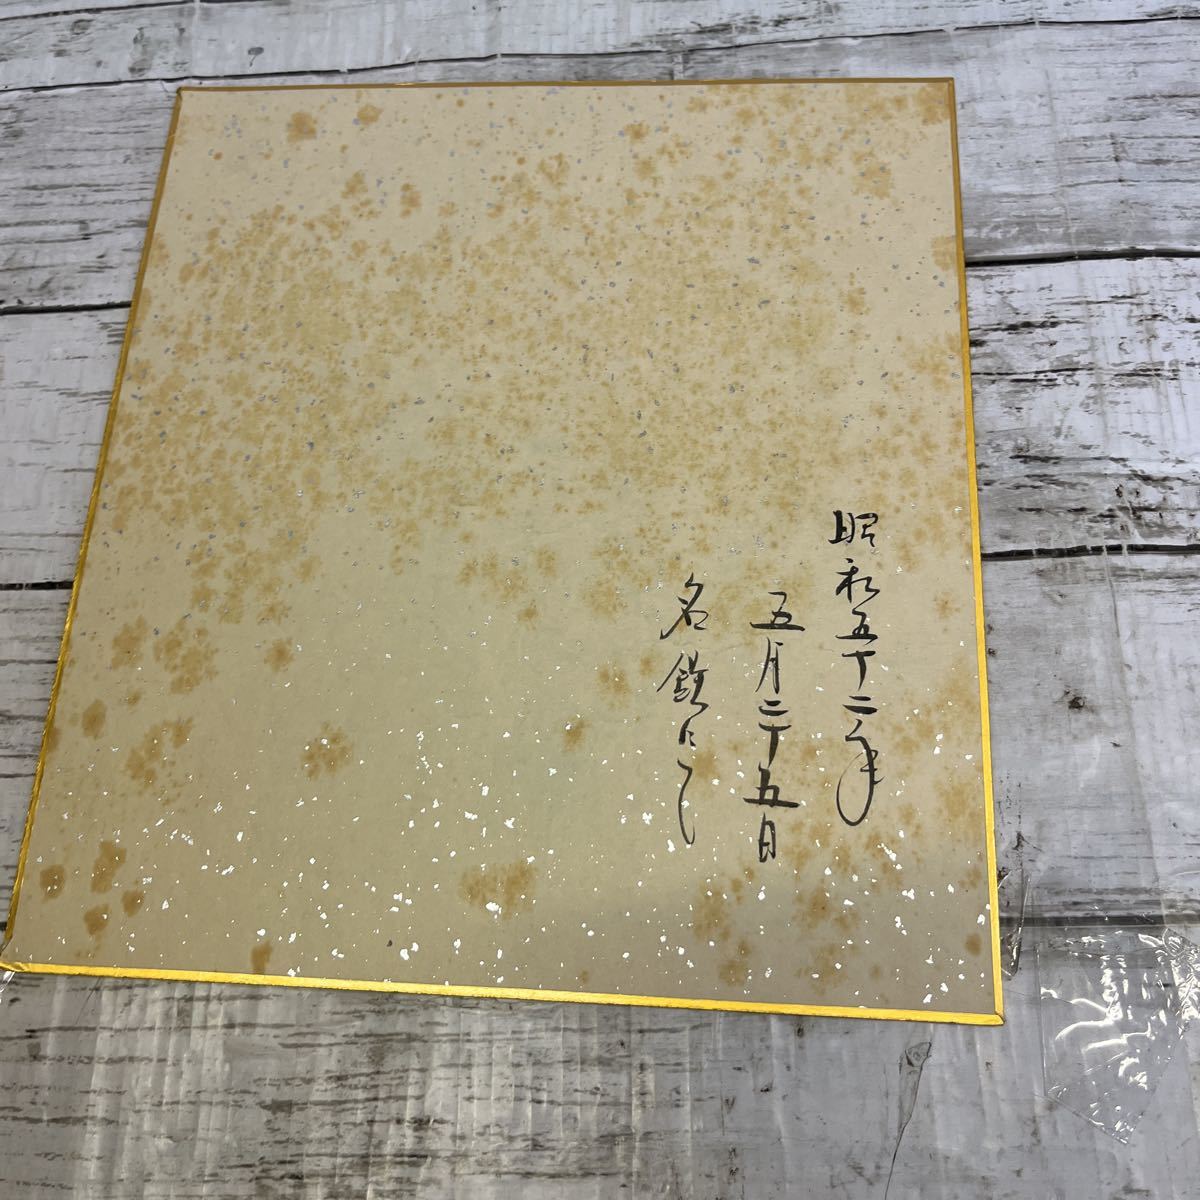 昭和五十二年
五月二十五日
名鉄にて